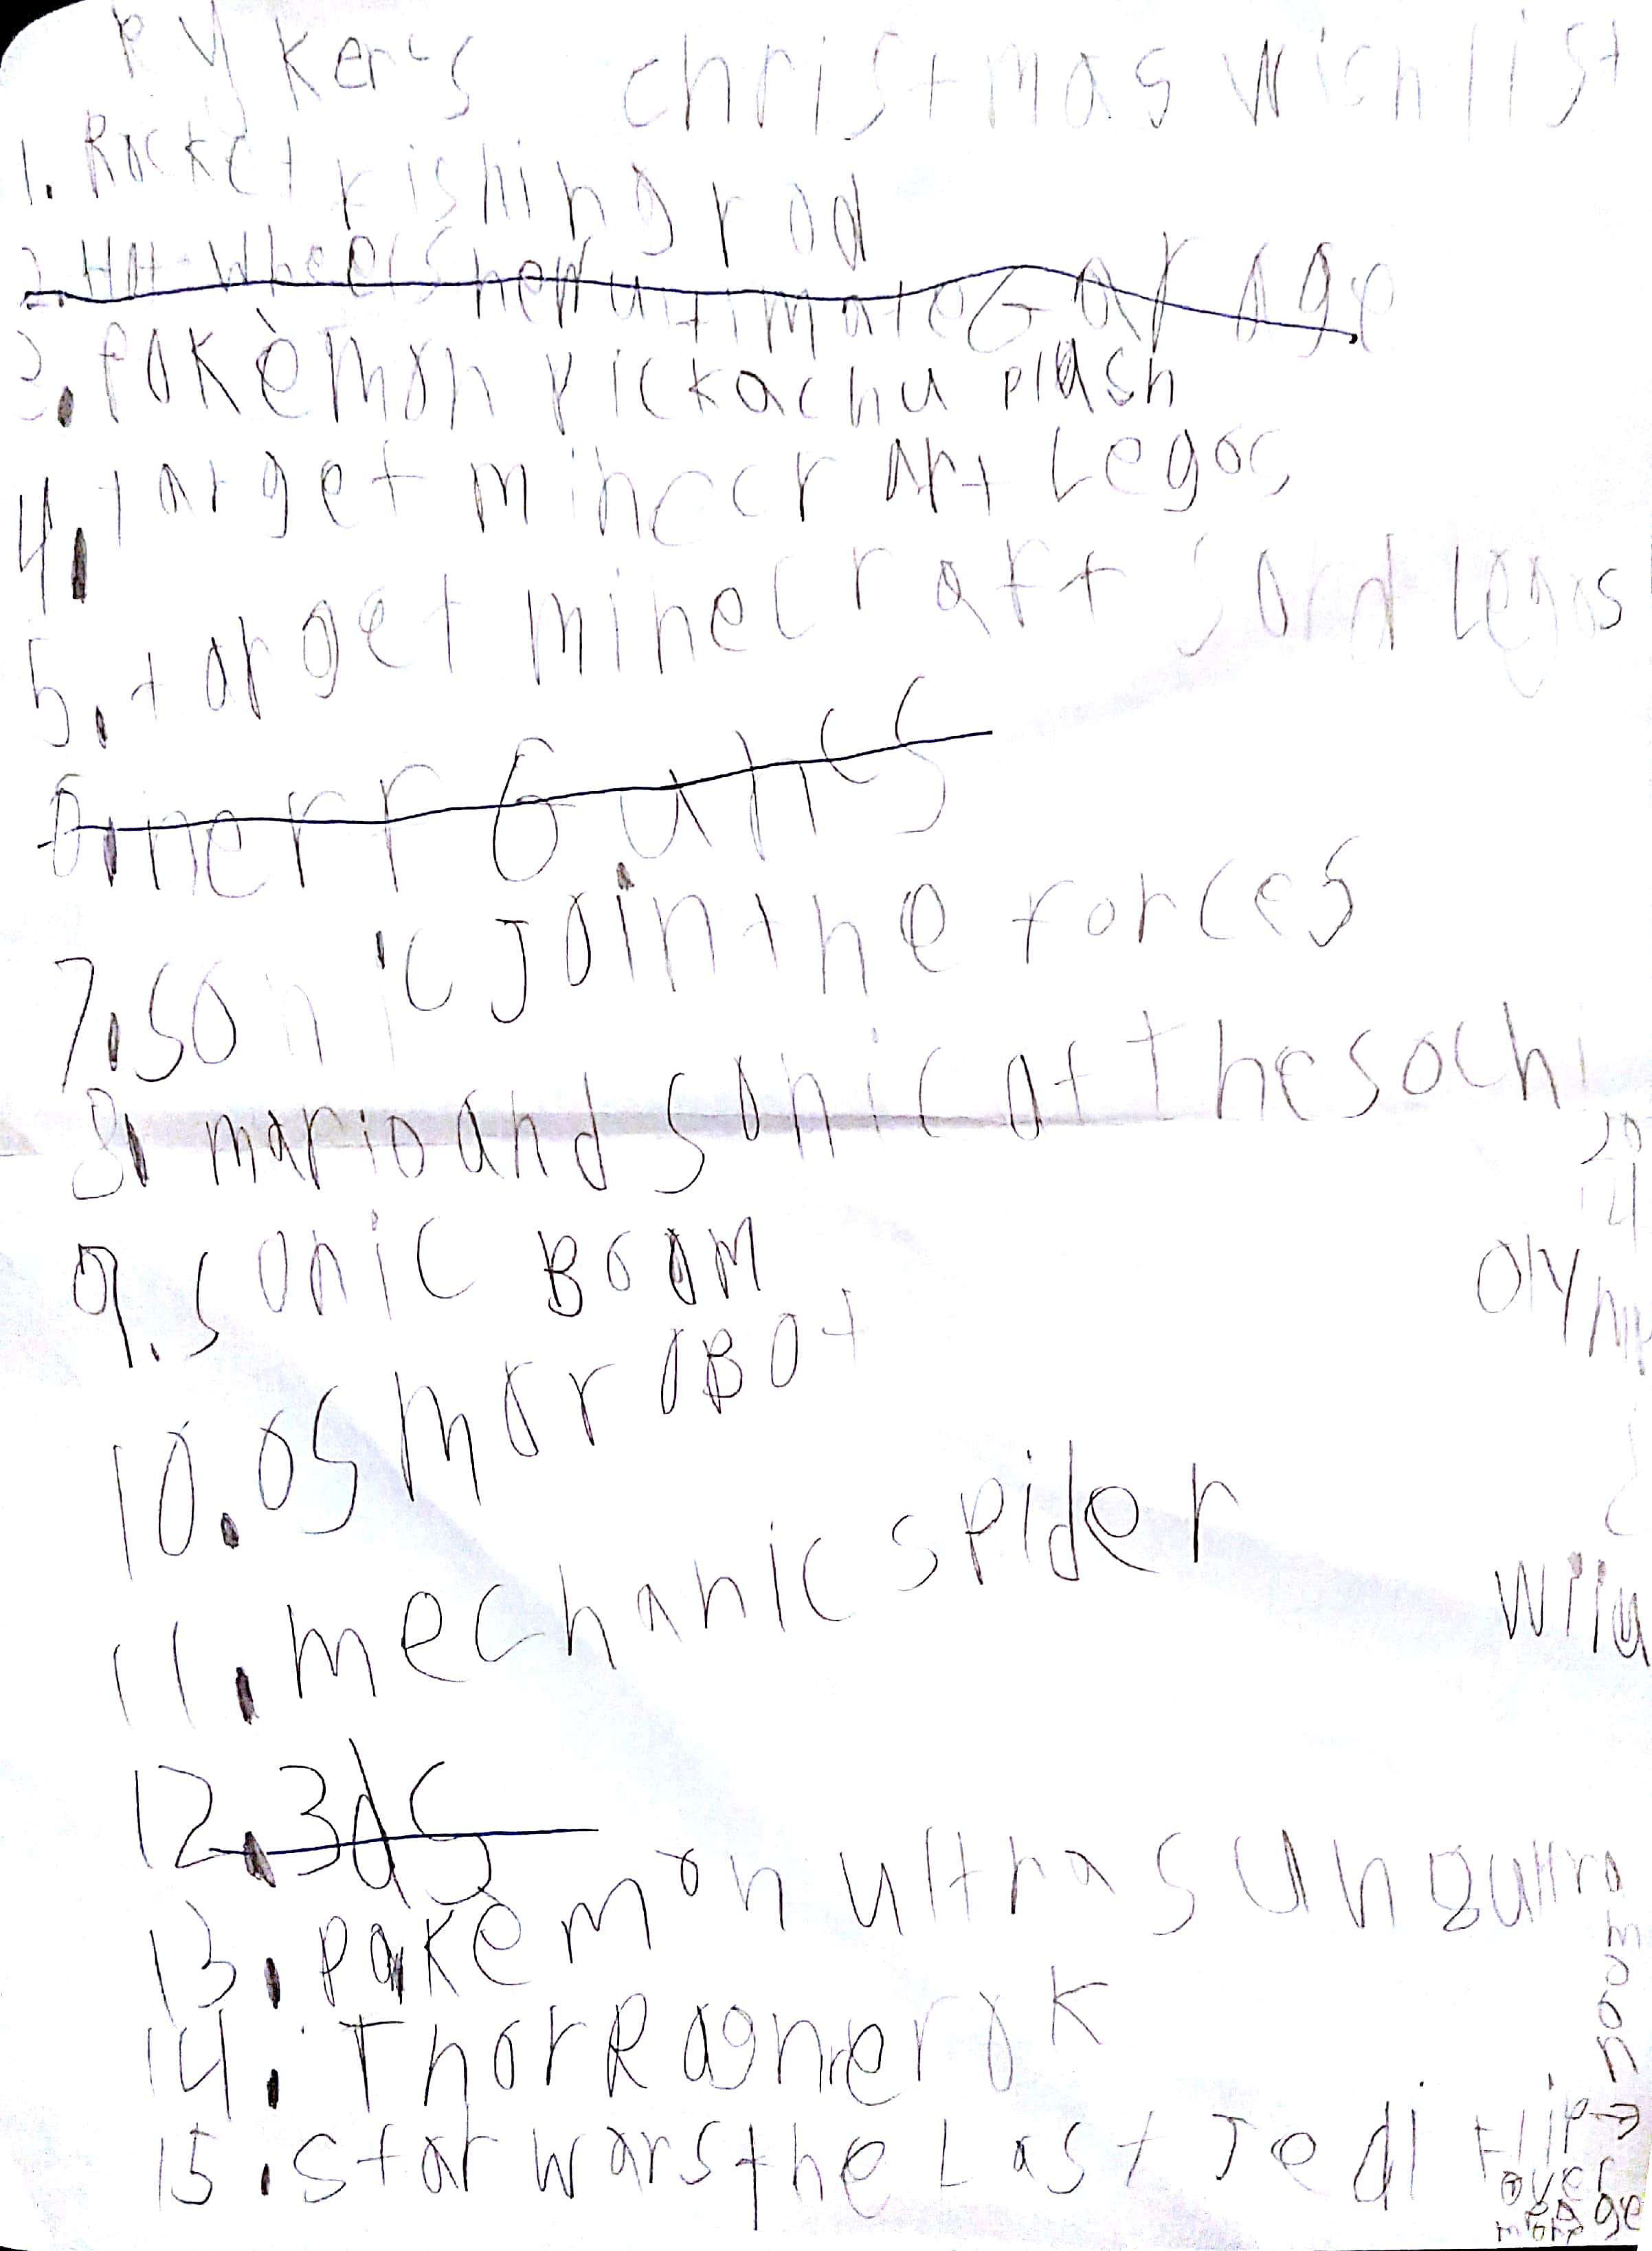 Ryker's christmas wish list
1. Rocket fishing rod
2. Hot Wheels new ultimate Garage
3. Pokèmon Pickachu plush
4. target minecraft Legos
5. target minecraft sord Legos
6. nerf Gunes
7. sonic Join the forces
8. mario and sonic at the sochi
2014
Olymp
9. sonic BOOM
10. osmo roBot
11. mechanic spider
wiiu
12. 3ds
13. pokemon ultra sun & ultra
moon
14. Thor Ragnerok
15. Star wars the Last Jedi Flip →
over
page
more